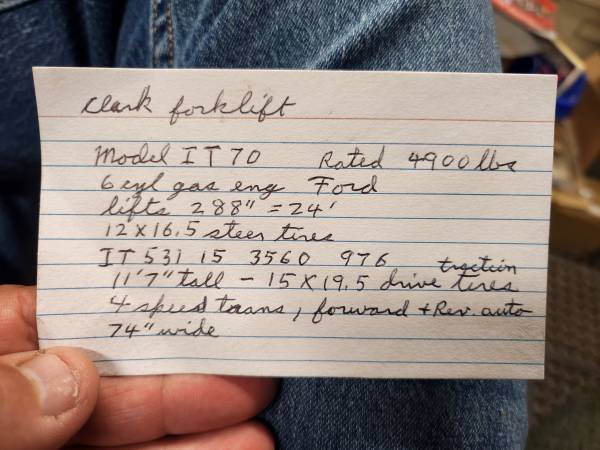 Clark forklift
Model IT70 Rated 4900 lbs
6 cyl gas eng Ford
lifts 288" = 24'
12x16.5 steer tires
IT531 15 3560 976
11'7" tall - 15x19.5 drive traction tires
4 speed trans, forward + Rev. auto
74" wide